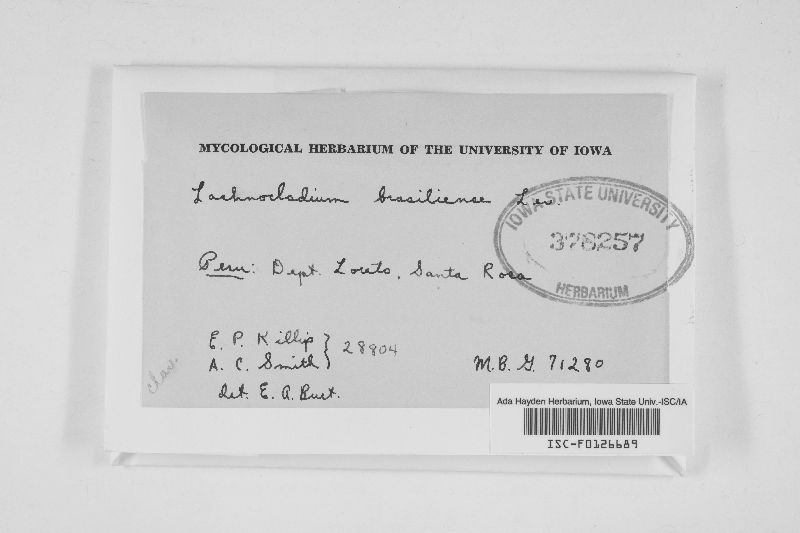 MYCOLOGICAL HERBARIUM OF THE UNIVERSITY OF IOWA
Lachnocladium brasiliense Lev.
IOWA STATE UNIVERSITY
376257
HERBARIUM
Peru: Dept. Loreto, Santa Rosa
E. P. Killip } 28804
A. C. Smith
M.B.G. 71280
det. E. A. Burt.
Ada Hayden Herbarium, Iowa State Univ.-ISC/IA
ISC-F0126689